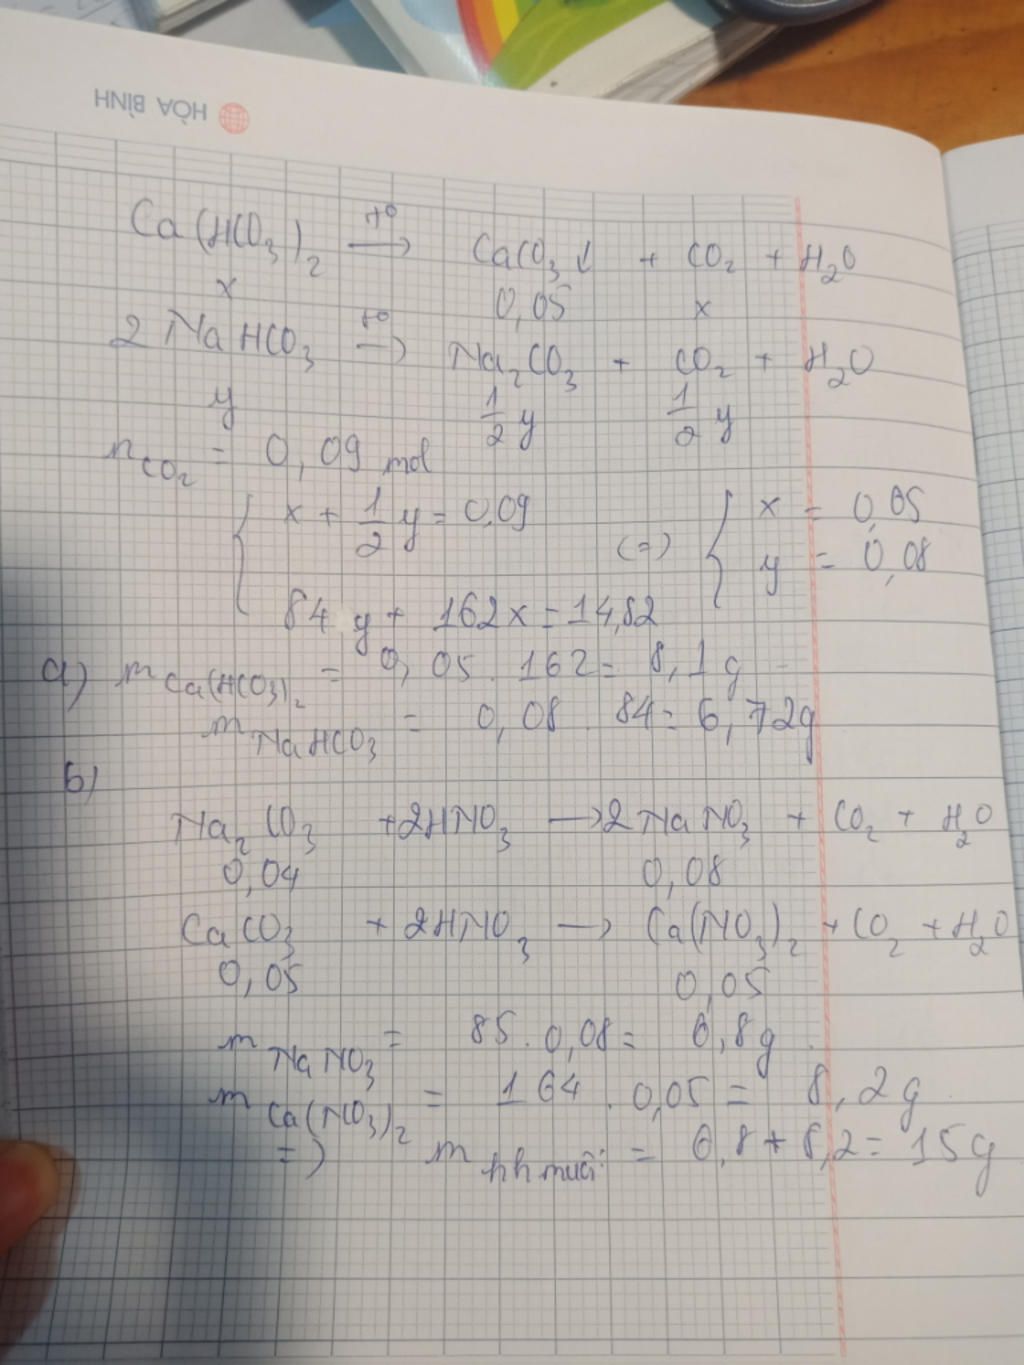 HÒA BÌNH
Ca(HCO3)2 —t°→ CaCO3↓ + CO2 + H2O
x 0,05 x
2 NaHCO3 —t°→ Na2CO3 + CO2 + H2O
y 1/2 y 1/2 y
nCO2 = 0,09 mol
{ x + 1/2 y = 0,09 (=) { x = 0,05
84 y + 162x = 14,82 y = 0,08
a) mCa(HCO3)2 = 0,05 . 162 = 8,1 g
mNaHCO3 = 0,08 . 84 = 6,72g
b)
Na2CO3 + 2HNO3 → 2NaNO3 + CO2 + H2O
0,04 0,08
CaCO3 + 2HNO3 → Ca(NO3)2 + CO2 + H2O
0,05 0,05
mNaNO3 = 85 . 0,08 = 6,8g
mCa(NO3)2 = 164 . 0,05 = 8,2g
=) m hh muối = 6,8 + 8,2 = 15g